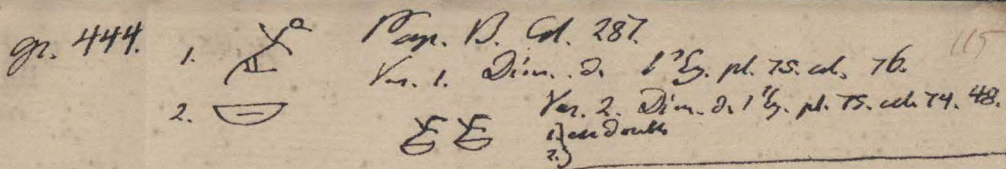 gr. 444. 1. Pap. B. Col. 287. 115
Var. 1. Dém. d. l'Eg. pl. 75. col. 76.
2. Var. 2. Dém. d. l'Eg. pl. 75. col. 74. 48.
1.} double
2.}